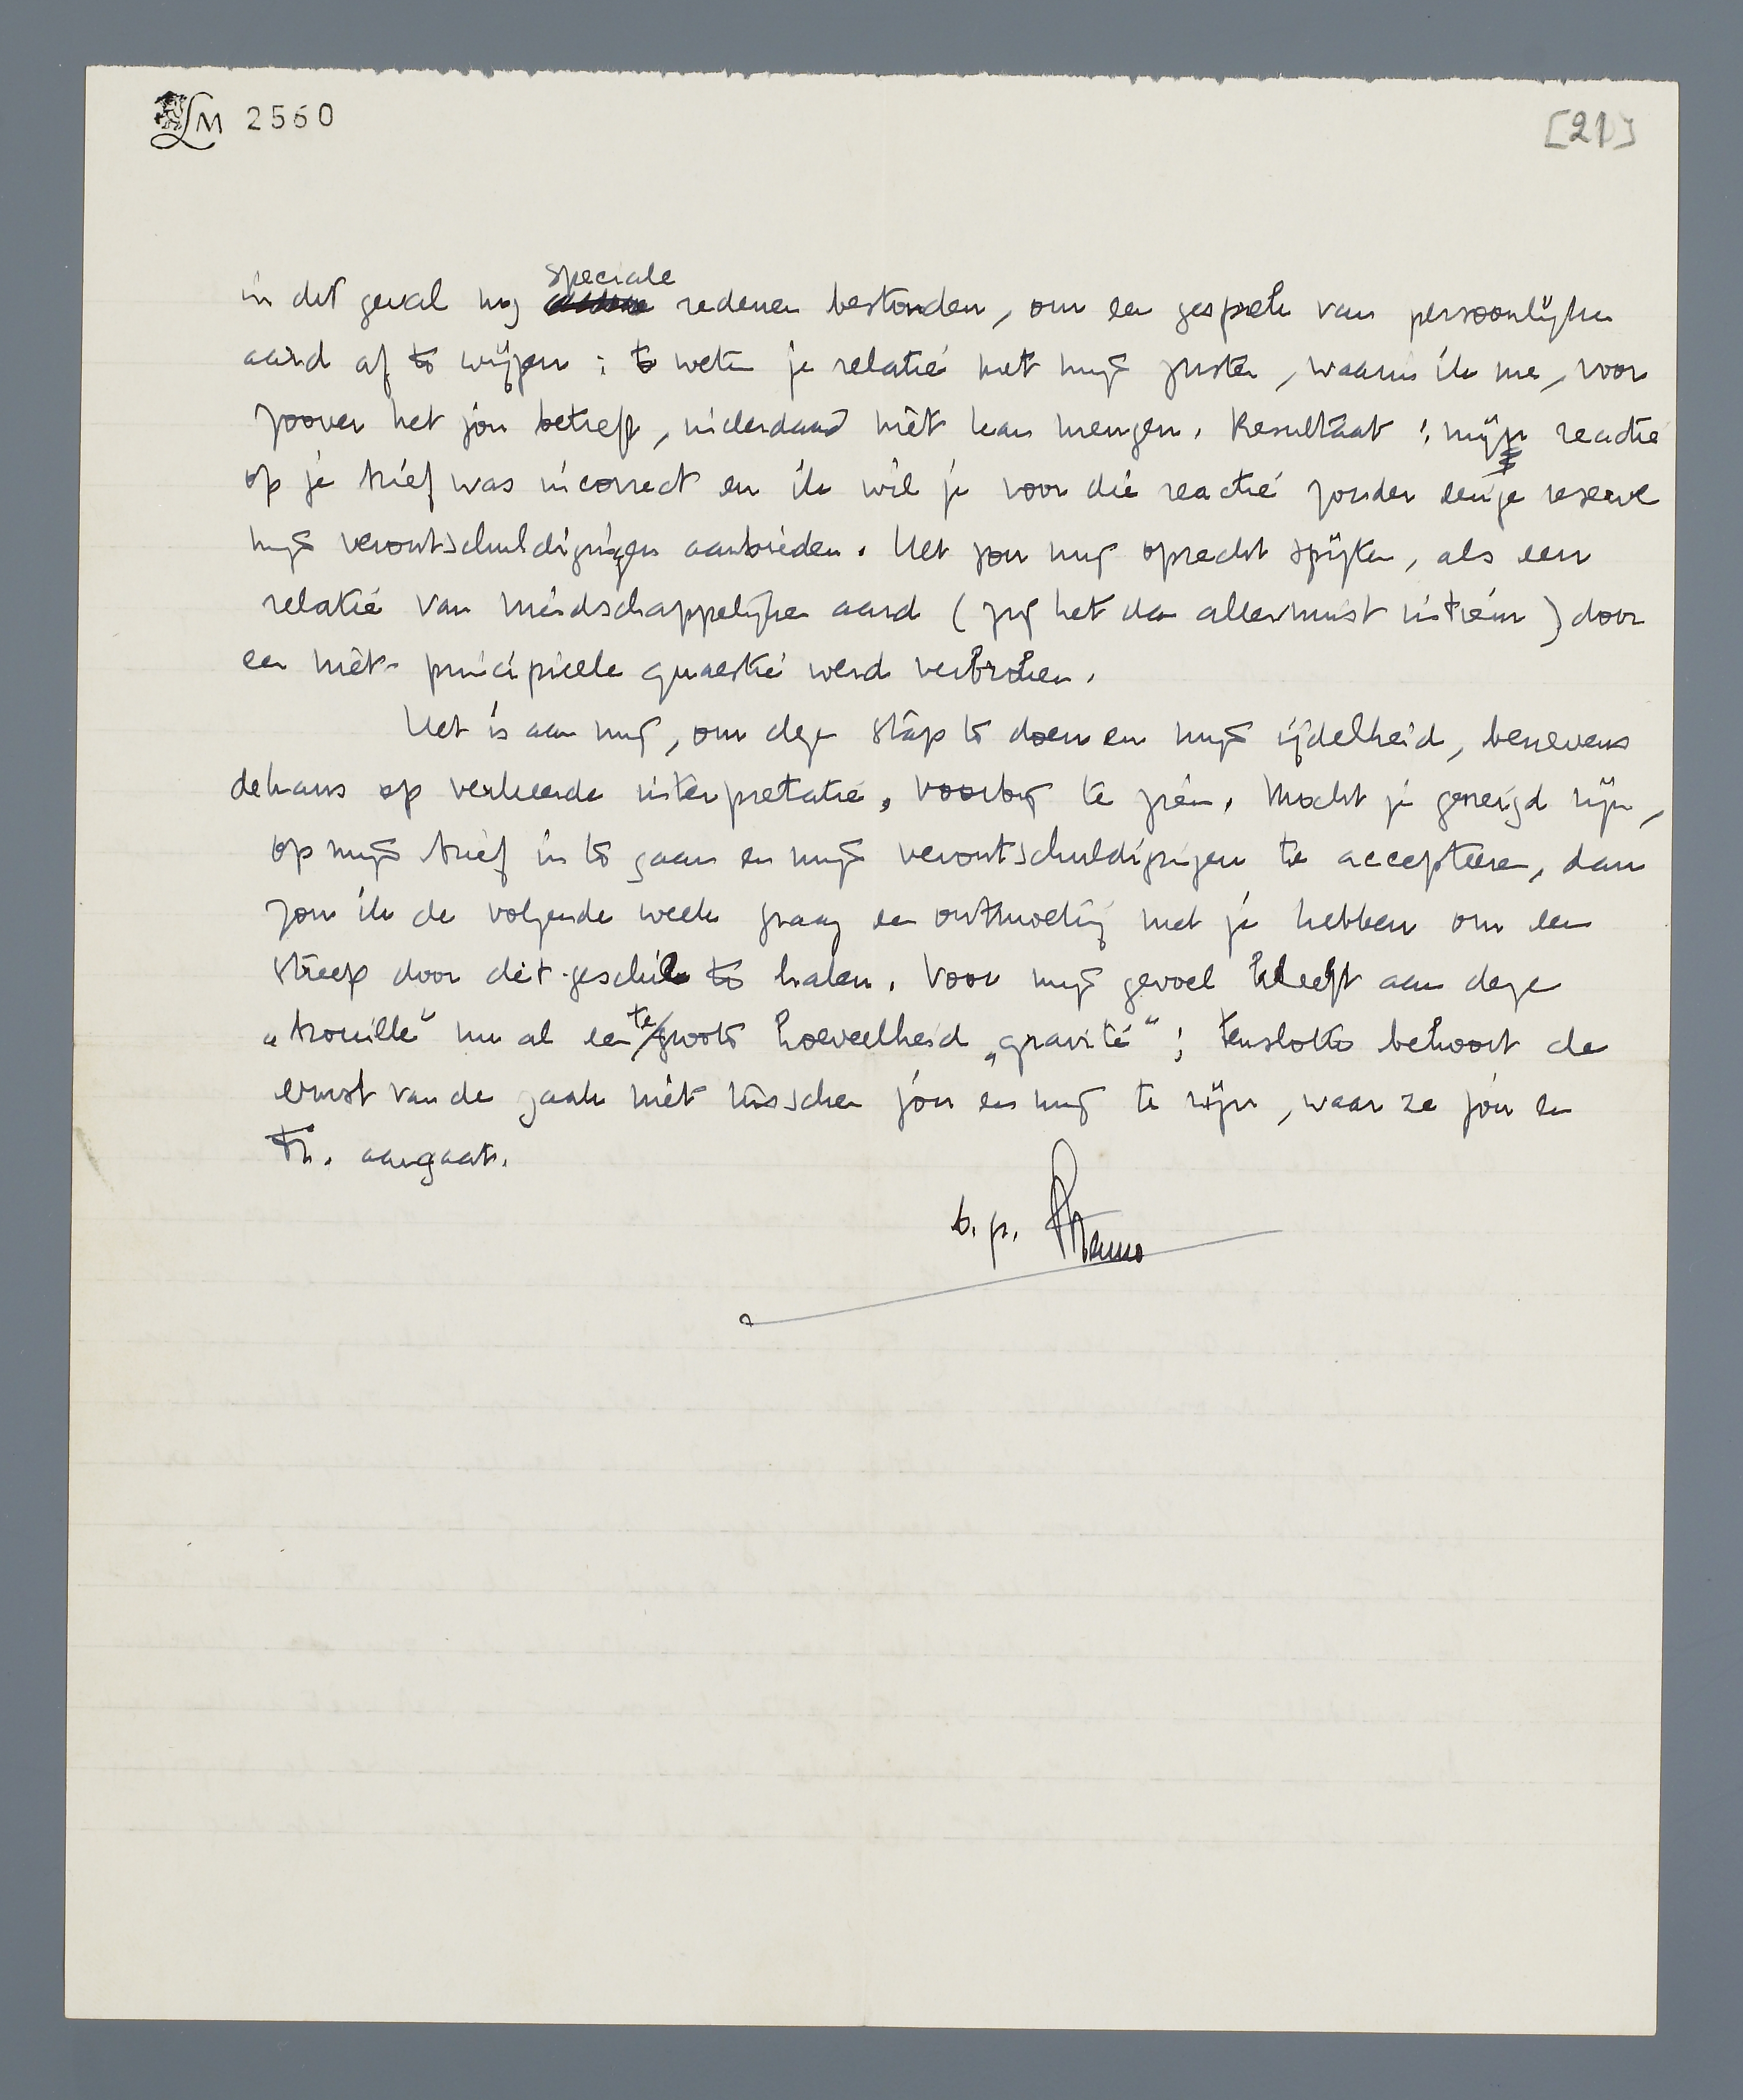 LM 2560
[21]
speciale
in dit geval nog redenen bestonden, om een gesprek van persoonlijken
aard af te wijzen: te weten je relatie met mijn zuster, waarin ik me, voor
zoover het jou betreft, inderdaad niet kan mengen. Resultaat: mijn reactie
op je brief was incorrect en ik wil je voor die reactie zonder eenige reserve
mijn verontschuldigingen aanbieden. Het zou mij oprecht spijten, als een
relatie van vriendschappelijken aard (zij het dan allerminst intiem) door
een niet-principieele quaestie werd verbroken.
Het is aan mij, om deze stap te doen en mijn ijdelheid, benevens
de kans op verkeerde interpretatie, voorbij te zien. Mocht je geneigd zijn,
op mijn brief in te gaan en mijn verontschuldigingen te accepteeren, dan
zou ik de volgende week graag een ontmoeting met je hebben om een
streep door dit geschil te halen. Voor mijn gevoel kleeft aan deze
„brouille" nu al een te groote hoeveelheid „gravité"; tenslotte behoort de
ernst van de zaak niet tusschen jou en mij te zijn, waar ze jou en
Tr. aangaat.
b.g. Menno